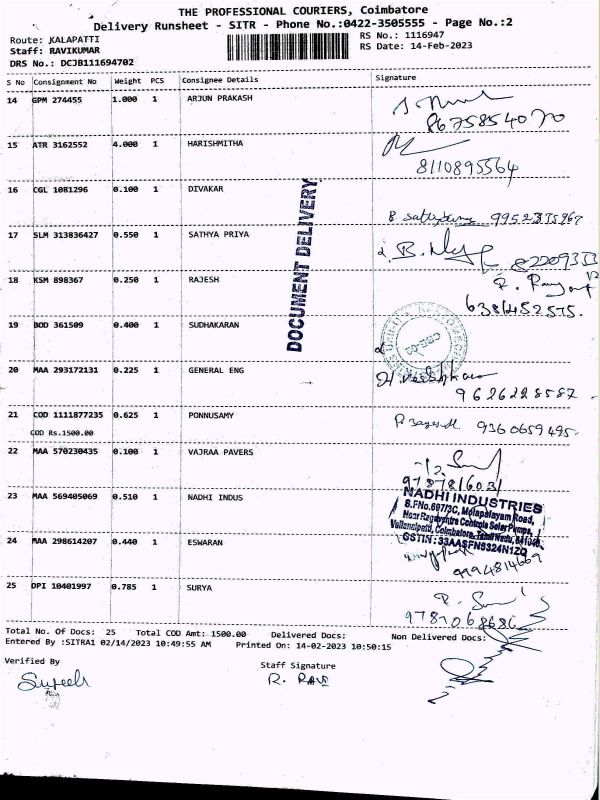 THE PROFESSIONAL COURIERS, Coimbatore
Delivery Runsheet - SITR - Phone No.:0422-3505555 - Page No.:2
Route: KALAPATTI
RS No.: 1116947
Staff: RAVIKUMAR
RS Date: 14-Feb-2023
DRS No.: DCJB111694702
S No Consignment No Weight PCS Consignee Details Signature
14 GPM 274455 1.000 1 ARJUN PRAKASH
8675854070
15 ATR 3162552 4.000 1 HARISHMITHA
8110895564
16 CGL 1081296 0.100 1 DIVAKAR
DOCUMENT DELIVERY
17 SLM 313836427 0.550 1 SATHYA PRIYA
18 KSM 898367 0.250 1 RAJESH
6381452575.
19 BOD 361509 0.400 1 SUDHAKARAN
20 MAA 293172131 0.225 1 GENERAL ENG
9626228587
21 COD 1111877235 0.625 1 PONNUSAMY
9360659495
COD Rs.1500.00
22 MAA 570230435 0.100 1 VAJRAA PAVERS
23 MAA 569405069 0.510 1 NADHI INDUS
NADHI INDUSTRIES
S.FNo.697/3C, Molapalayam Road,
Near Ragavendra Controls Solar Pumps,
Vellanaipatti, Coimbatore, Tamil Nadu, 641048
GSTIN : 33AASFN9324N1ZQ
24 MAA 298614207 0.440 1 ESWARAN
9994814669
25 DPI 10401997 0.785 1 SURYA
9787068686
Total No. Of Docs: 25 Total COD Amt: 1500.00 Delivered Docs: Non Delivered Docs:
Entered By :SITRA1 02/14/2023 10:49:55 AM Printed On: 14-02-2023 10:50:15
Verified By Staff Signature
Suresh R. RAVI